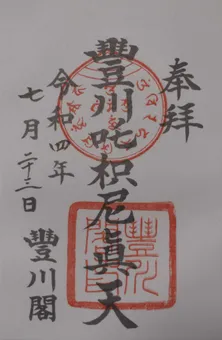 奉拝
豐川吒枳尼眞天
令和四年
七月二十三日
豐川閣